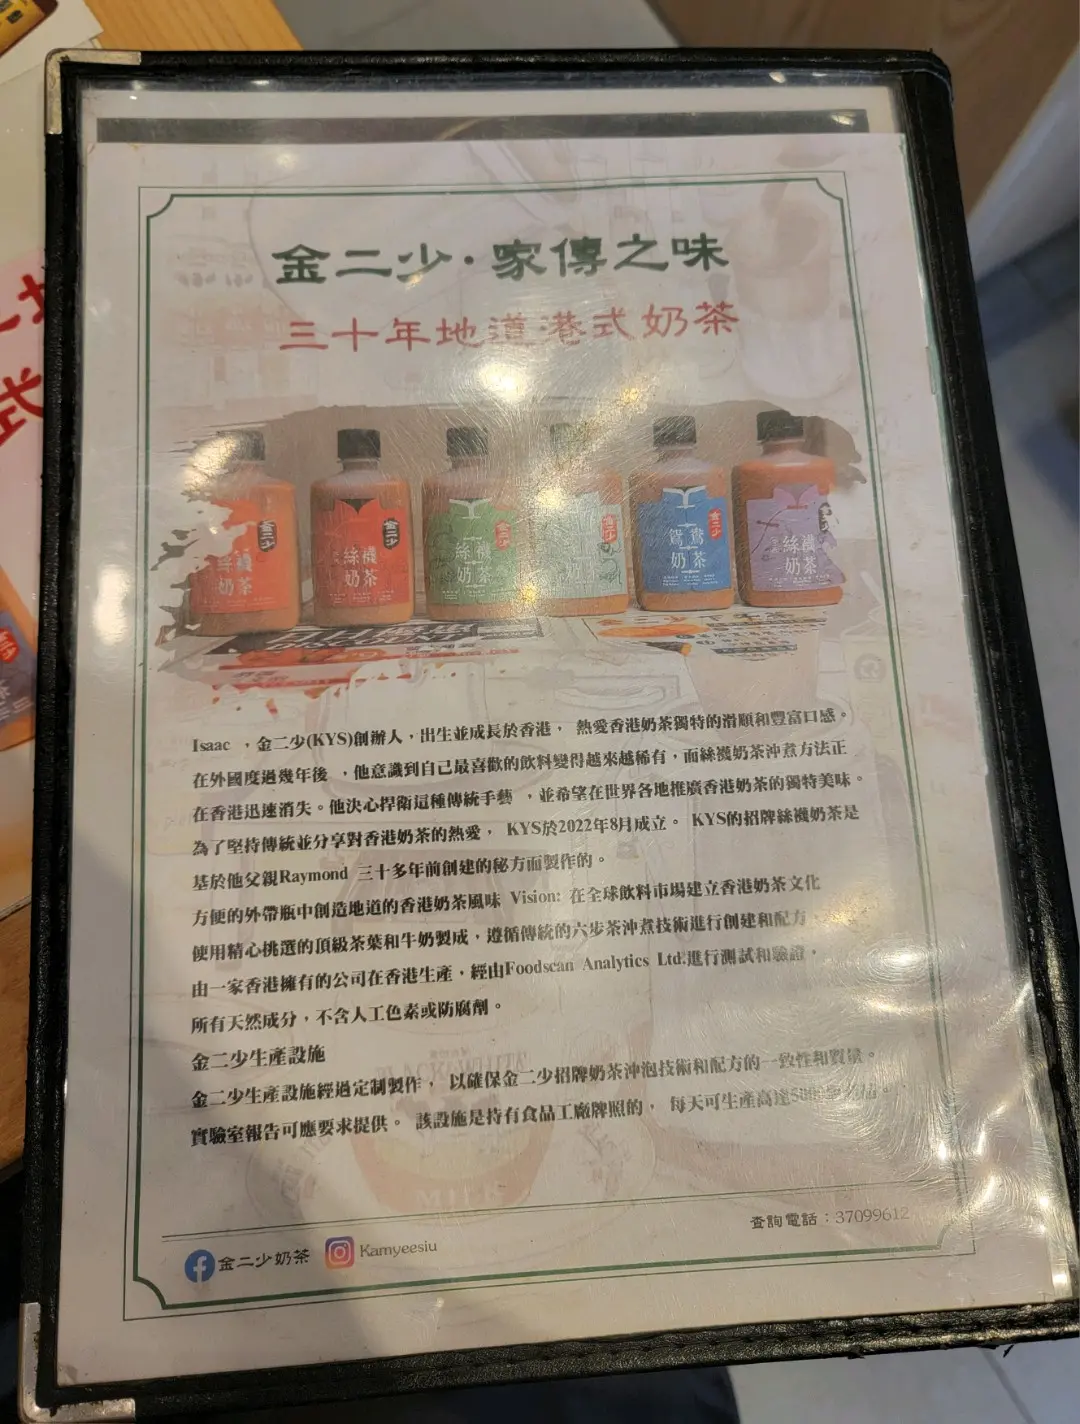 金二少·家傳之味
三十年地道港式奶茶
絲襪
奶茶
金二少
絲襪
奶茶
金二少
絲襪
奶茶
金二少
奶
金二少
鴛鴦
奶茶
金二少
絲襪
奶茶
Isaac ，金二少(KYS)創辦人，出生並成長於香港， 熱愛香港奶茶獨特的滑順和豐富口感。
在外國度過幾年後 ，他意識到自己最喜歡的飲料變得越來越稀有，而絲襪奶茶沖煮方法正
在香港迅速消失。他決心捍衛這種傳統手藝 ，並希望在世界各地推廣香港奶茶的獨特美味。
為了堅持傳統並分享對香港奶茶的熱愛， KYS於2022年8月成立。 KYS的招牌絲襪奶茶是
基於他父親Raymond 三十多年前創建的秘方而製作的。
方便的外帶瓶中創造地道的香港奶茶風味 Vision: 在全球飲料市場建立香港奶茶文化
使用精心挑選的頂級茶葉和牛奶製成，遵循傳統的六步茶沖煮技術進行創建和配方，
由一家香港擁有的公司在香港生產，經由Foodscan Analytics Ltd.進行測試和驗證，
所有天然成分，不含人工色素或防腐劑。
金二少生產設施
金二少生產設施經過定制製作， 以確保金二少招牌奶茶沖泡技術和配方的一致性和質量。
實驗室報告可應要求提供。 該設施是持有食品工廠牌照的， 每天可生產高達
BLACK&WHITE
MILK
查詢電話：37099612
金二少奶茶 Kamyeesiu